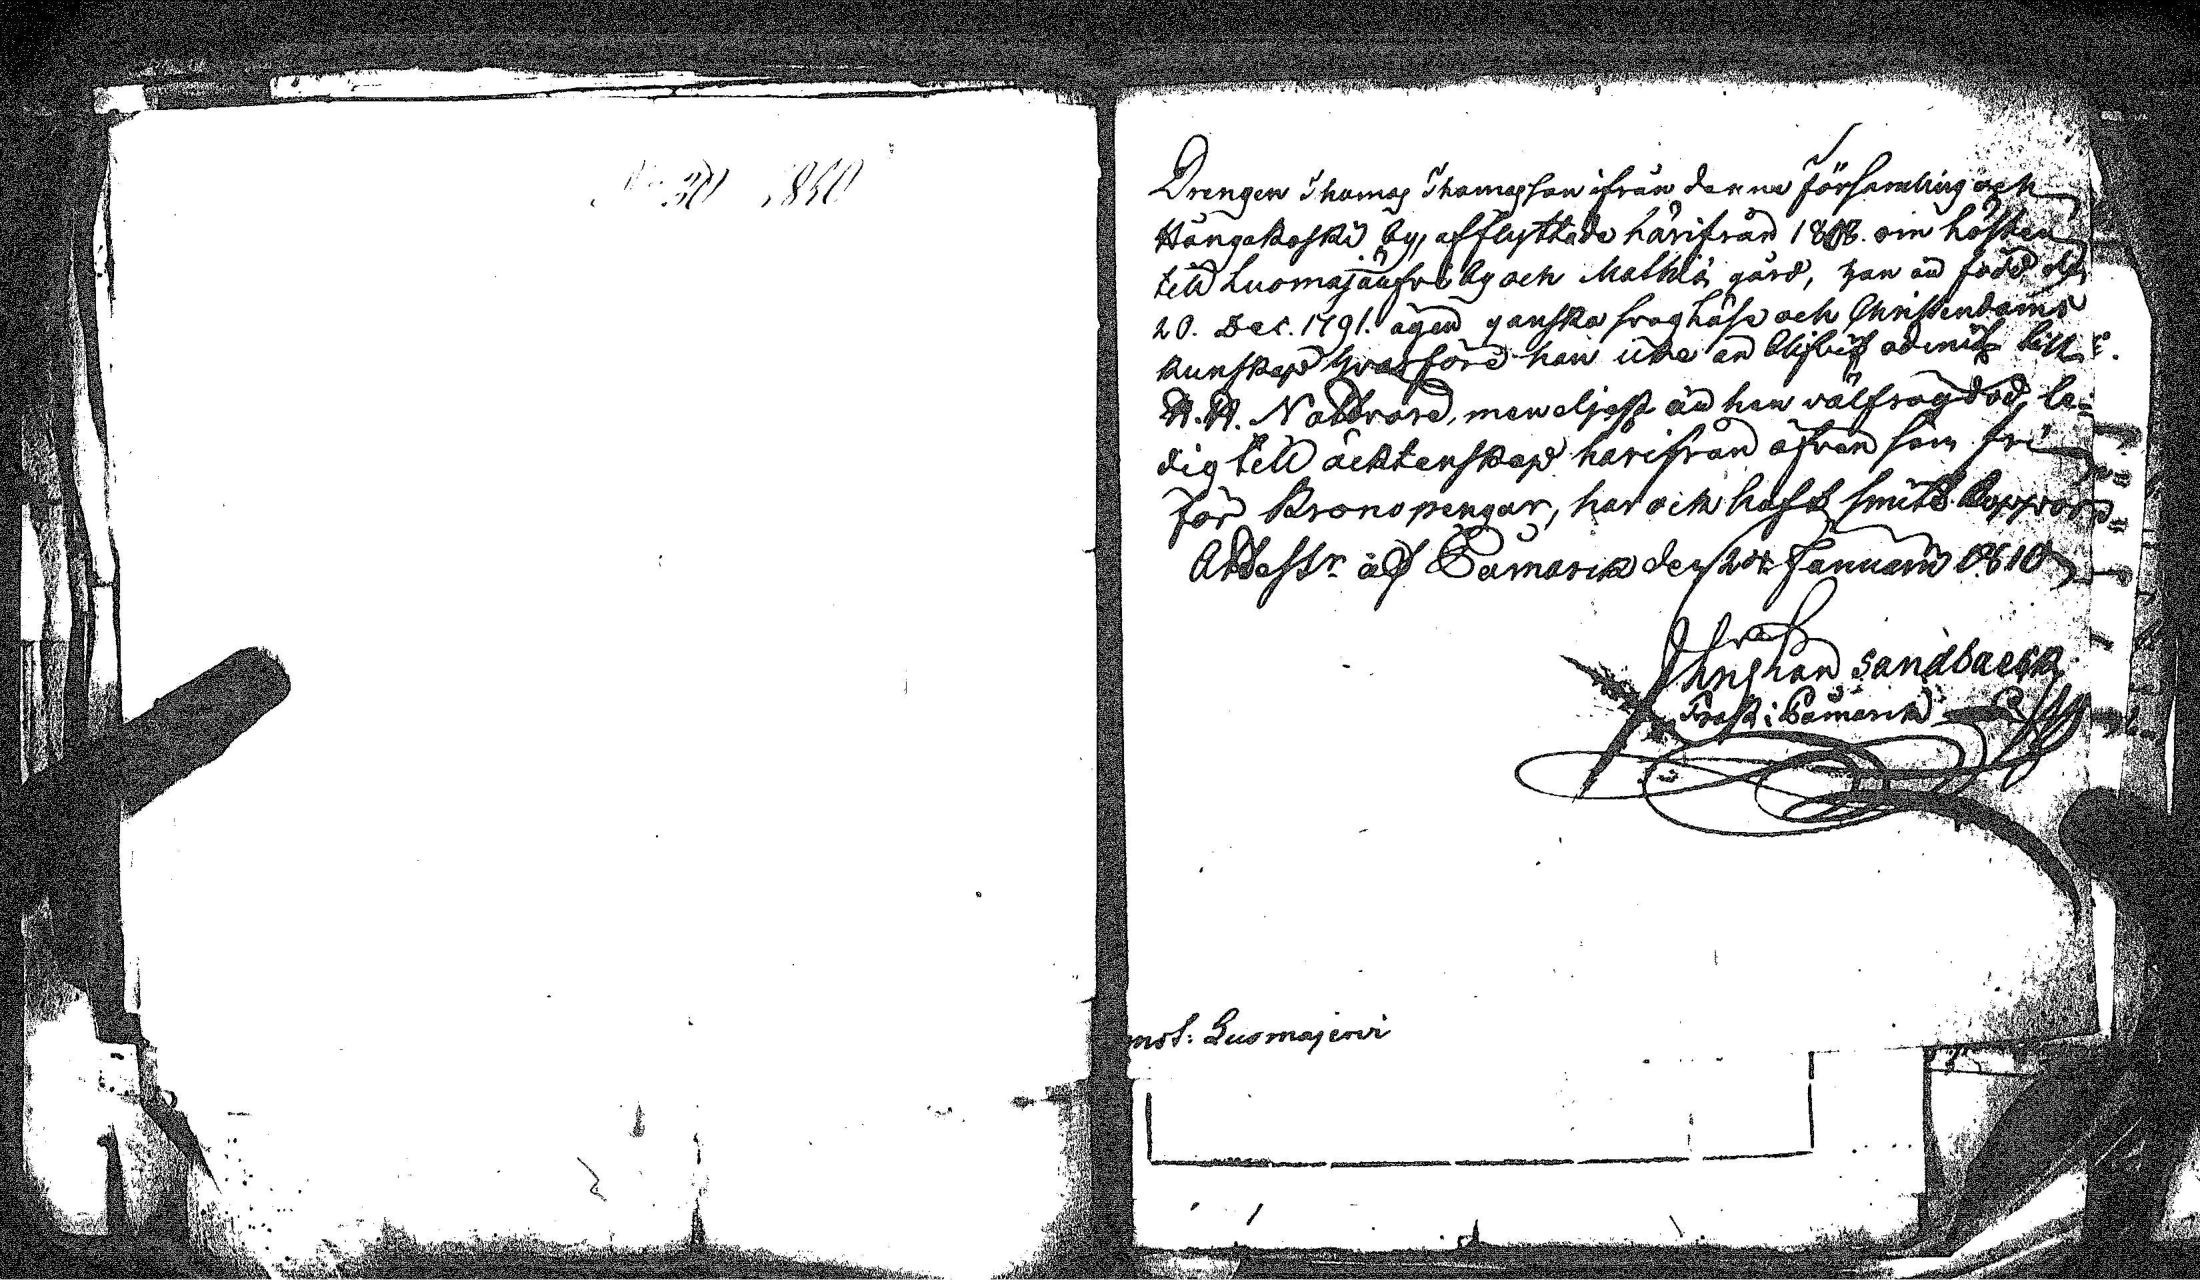 No 30 1810
Drengen Thomas Thomasson ifrån denna Församling och
Kångakoski by, afflyttade härifrån 1808. om hösten
till Luomajärfvi by och Mathia gård, han är född d.
20. Dec. 1791. äger ganska svag läse och Christendoms
kunskap hvarföre han icke är blifvit admitt. till
H. H. Nattvard, men eljest är han välfrägdad, le-
dig till äcktenskap härifrån äfven som fri
för Kronopengar, har och haft smitt. koppor
Attestr. af Påmark den Januarii 1810
Christian Sandbaeck
i Påmark
mot: Luomajervi